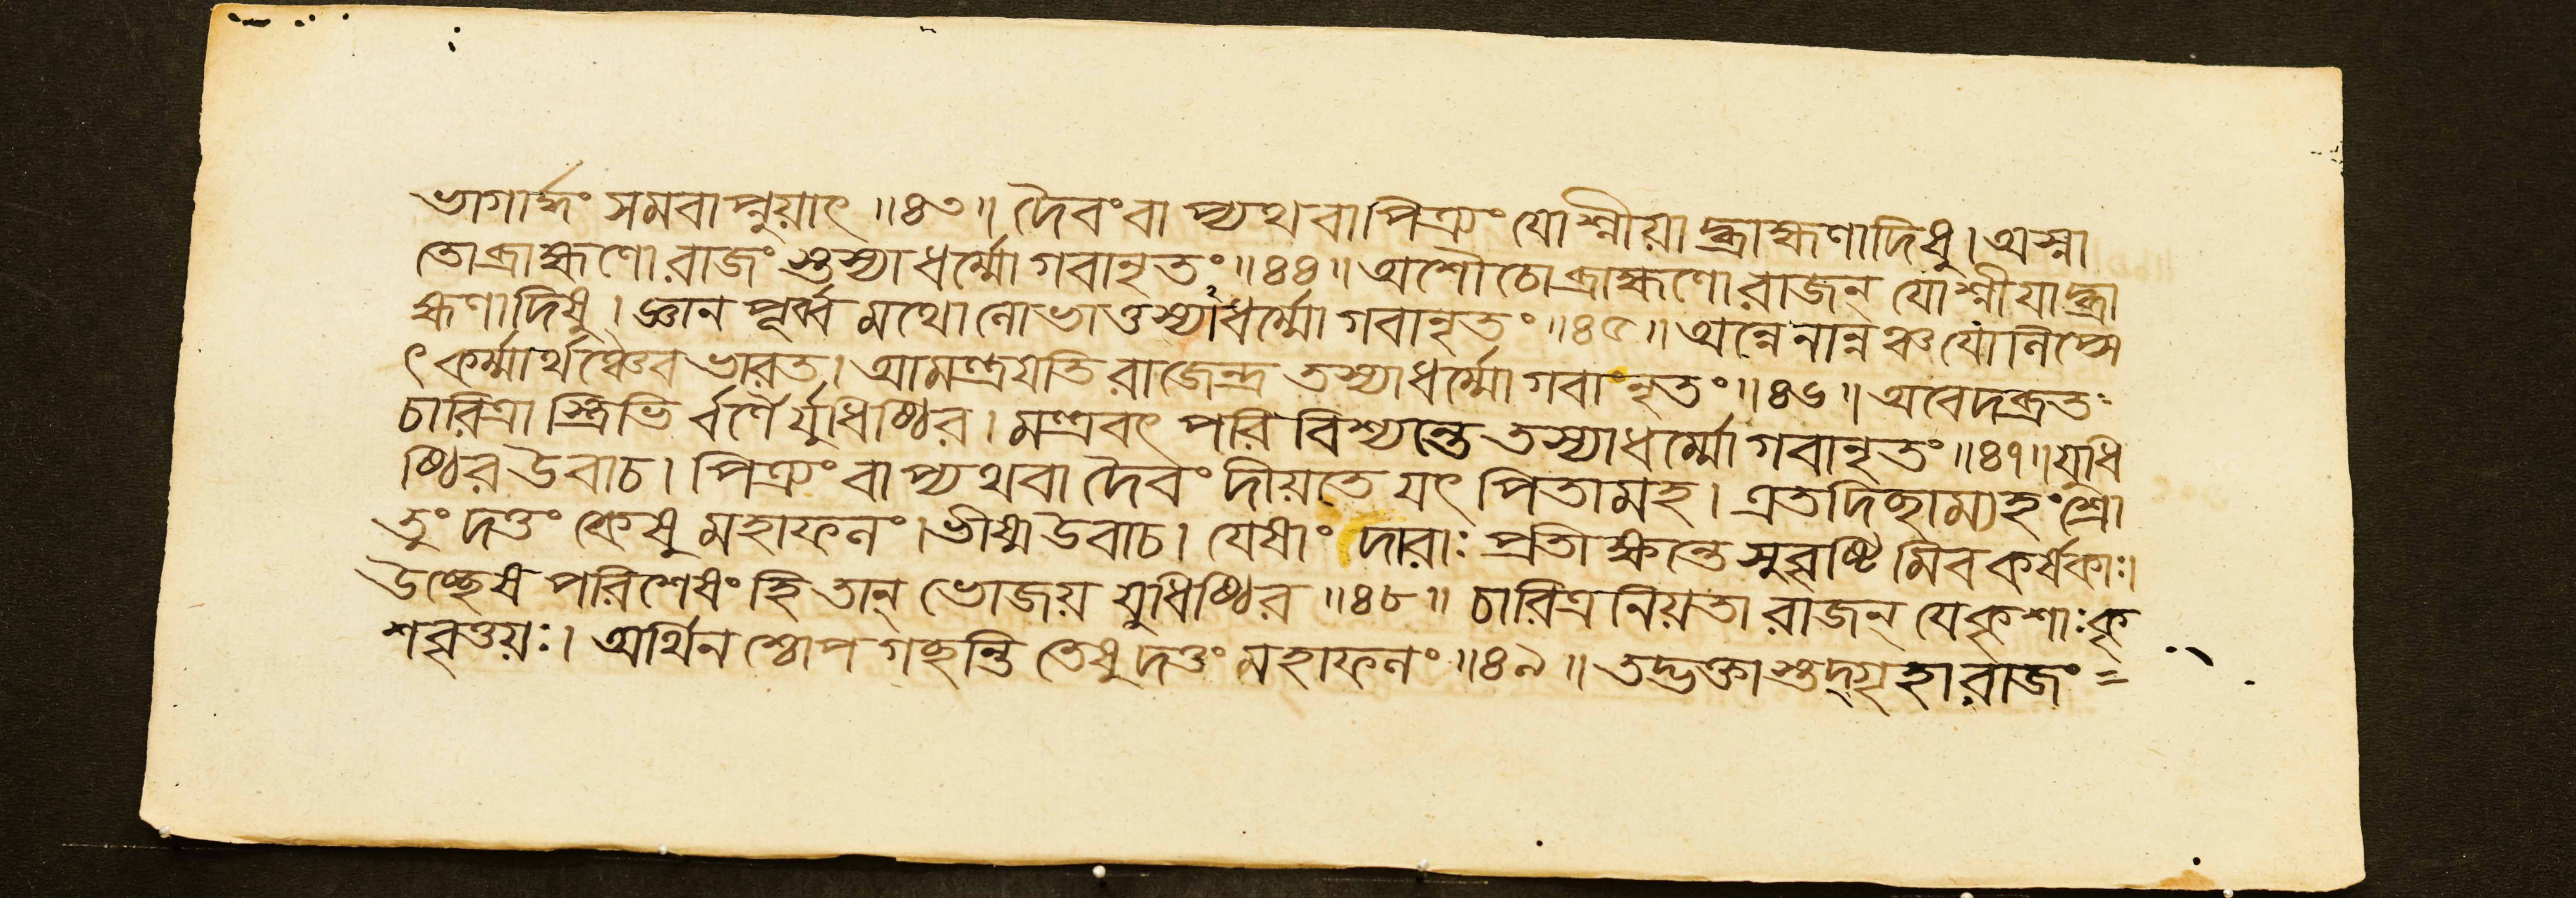 ভাগার্দ্ধং সমবাপ্নুয়াৎ ॥৪৩॥ দৈবং বাপ্যথবা পিত্র্যং যোশ্নীয়াদ্ব্রাহ্মণাদিষু । অস্না
তো ব্রাহ্মণো রাজংস্তস্যাধর্ম্মো গবানৃতং ॥৪৪॥ অশৌচো ব্রাহ্মণো রাজন্ যোশ্নীয়াদ্ব্রা
হ্মণাদিষু । জ্ঞানপূর্ব্বমথো লোভাত্তস্যাধর্ম্মো গবানৃতং ॥৪৫॥ অন্নেনান্নঞ্চ যো লিপ্সে
ৎ কর্ম্মার্থঞ্চৈব ভারত । আমন্ত্রয়তি রাজেন্দ্র তস্যাধর্ম্মো গবাংনৃতং ॥৪৬॥ অবেদব্রত
চারিত্রাস্ত্রিভির্ব্বর্ণৈর্যুধিষ্ঠির । মন্ত্রবৎ পরিবিশ্যন্তে তস্যাধর্ম্মো গবানৃতং ॥৪৭॥ যুধি
ষ্ঠির উবাচ । পিত্র্যং বাপ্যথবা দৈবং দীয়তে যৎ পিতামহ । এতদিচ্ছাম্যহং শ্রো
তুং দত্তং কেষু মহাফলং । ভীষ্ম উবাচ । যেষাং দারাঃ প্রতীক্ষন্তে সুবৃষ্টিমিব কর্ষকাঃ ।
উচ্ছেষ পরিশেষং হি তান্ ভোজয় যুধিষ্ঠির ॥৪৮॥ চারিত্রনিয়তা রাজন্ যে কৃশাঃ কৃ
শবৃত্তয়ঃ । অর্থিনশ্চোপগচ্ছন্তি তেষু দত্তং মহাফলং ॥৪৯॥ তদ্ভক্তাস্তদ্গৃহা রাজং =